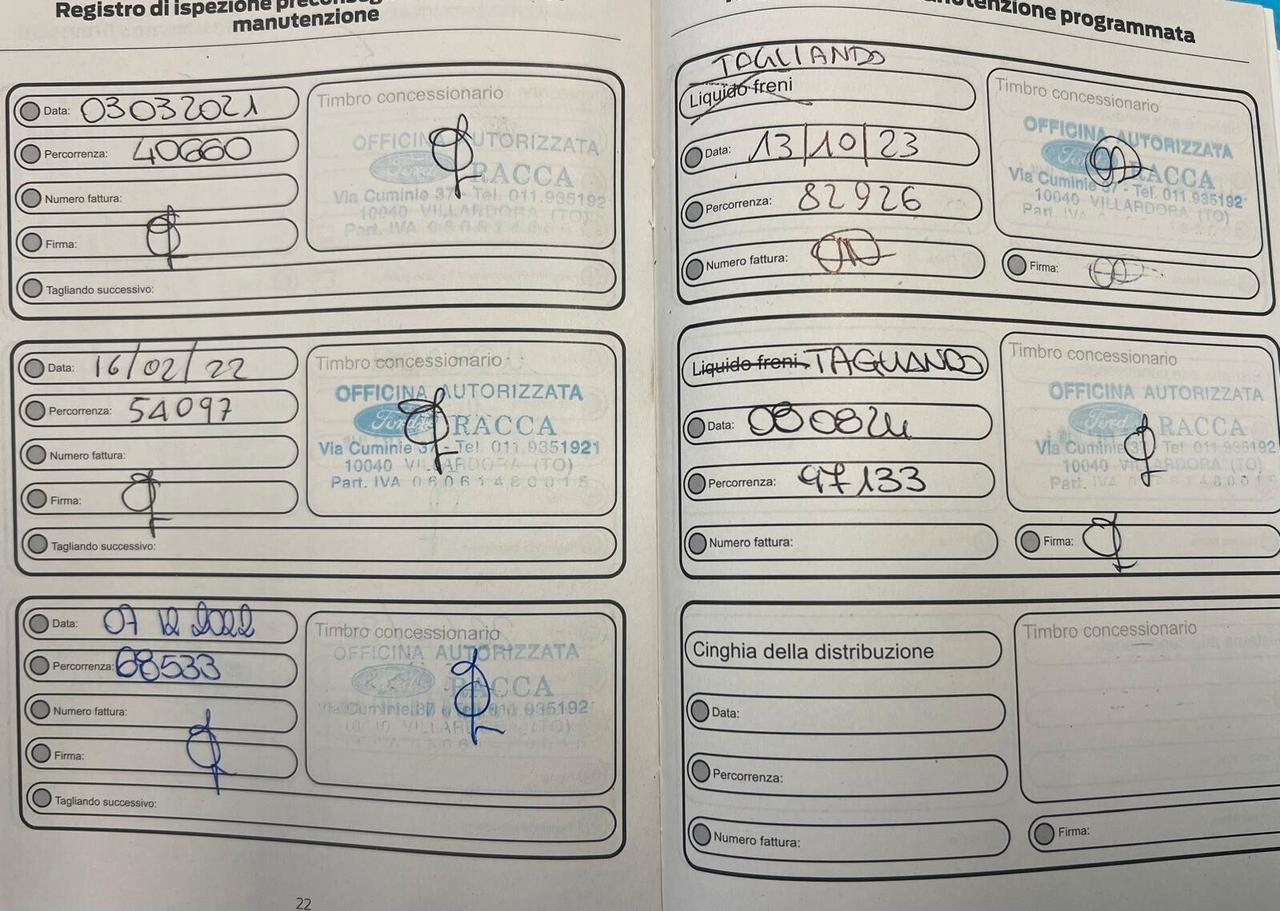 Registro di ispezione
manutenzione
Data: 03032021
Percorrenza: 40660
Numero fattura:
Firma:
Tagliando successivo:
Timbro concessionario
OFFICINA AUTORIZZATA
Ford RACCA
Via Cuminie 37 - Tel. 011.935192
10040 VILLARDORA (TO)
Part. IVA
Data: 16/02/22
Percorrenza: 54097
Numero fattura:
Firma:
Tagliando successivo:
Timbro concessionario
OFFICINA AUTORIZZATA
Ford RACCA
Via Cuminie 37 - Tel. 011.9351921
10040 VILLARDORA (TO)
Part. IVA
Data: 07 12 2022
Percorrenza: 68533
Numero fattura:
Firma:
Tagliando successivo:
Timbro concessionario
OFFICINA AUTORIZZATA
RACCA
Via Cuminie 37
22
manutenzione programmata
TAGLIANDO
Liquido freni
Data: 13/10/23
Percorrenza: 82926
Numero fattura:
Timbro concessionario
OFFICINA AUTORIZZATA
Ford RACCA
Via Cuminie 37 - Tel. 011.935192
10040 VILLARDORA (TO)
Part. IVA
Firma:
Liquido freni TAGLIANDO
Data: 080824
Percorrenza: 97133
Numero fattura:
Timbro concessionario
OFFICINA AUTORIZZATA
Ford RACCA
Via Cuminie 37 - Tel. 011.935192
10040 VILLARDORA (TO)
Part. IVA
Firma:
Cinghia della distribuzione
Data:
Percorrenza:
Numero fattura:
Timbro concessionario
Firma: